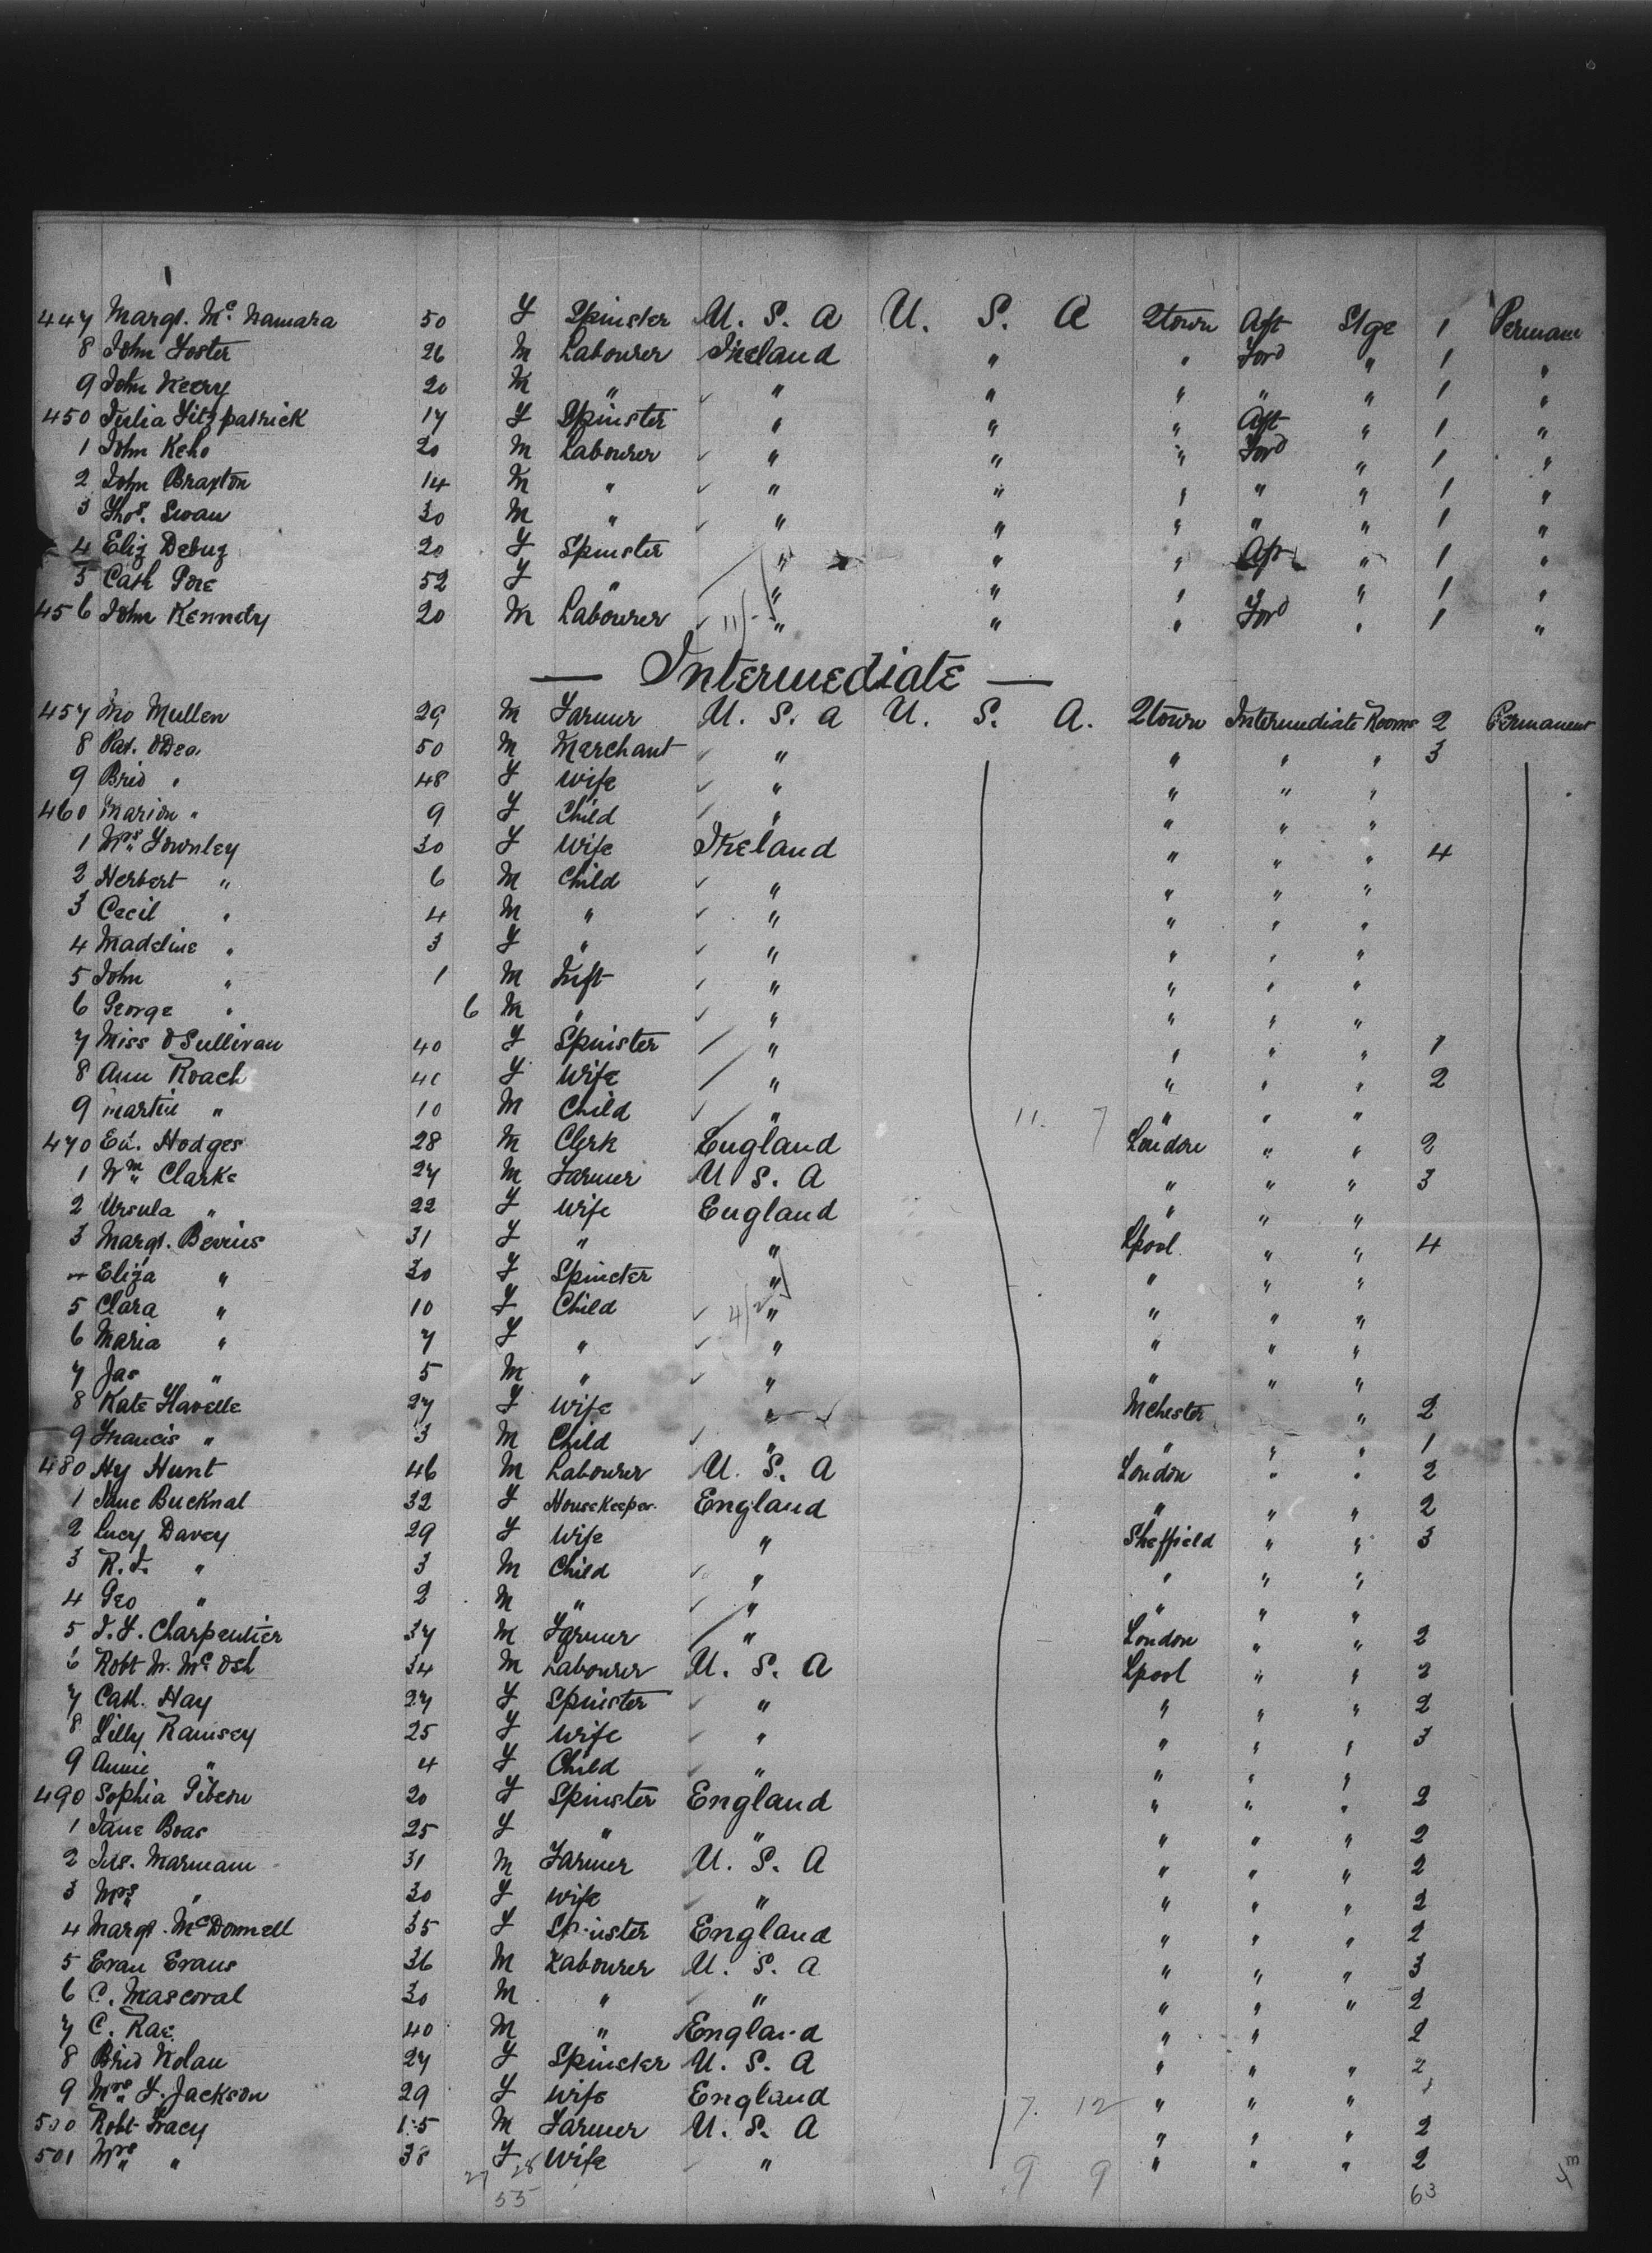 447 Margt. Mc Namara 50 F Spinster U. S. A U. S. A Qtown Aft Stge 1 Perman
8 John Foster 26 M Labourer Ireland " " Ford " 1 "
9 John Keery 20 M " " " " " " 1 "
450 Julia Fitzpatrick 17 F Spinster " " " Aft " 1 "
1 John Keho 20 M Labourer " " " Ford " 1 "
2 John Braxton 14 M " " " " " " 1 "
3 Thos. Swan 30 M " " " " " " 1 "
4 Eliz Debuz 20 F Spinster " " " Aft " 1 "
5 Cath Gore 52 F " " " " " 1 "
456 John Kennedy 20 M Labourer " " " Ford " 1 "
— Intermediate —
457 Mullen 29 M Farmer U. S. A U. S. A. Qtown Intermediate Rooms 2 Permanent
8 Pat. O'Dea 50 M Merchant " " " " 3
9 Brid " 48 F Wife " " " "
460 Marion " 9 F Child " " " "
1 Mrs Townley 30 F Wife Ireland " " " 4
2 Herbert " 6 M Child " " " "
3 Cecil " 4 M " " " " "
4 Madeline " 3 F " " " " "
5 John " 1 M Inft " " " "
6 George " 6 M " " " " "
7 Miss O Sullivan 40 F Spinster " " " " 1
8 Ann Roach 40 F Wife " " " " 2
9 Martin " 10 M Child " 11. 7 " " "
470 Ed. Hodges 28 M Clerk England London " " 2
1 Wm Clarke 27 M Farmer U. S. A " " " 3
2 Ursula " 22 F Wife England " " "
3 Margt. Bevins 31 F " " Lpool " " 4
4 Eliza " 30 F Spinster " " " "
5 Clara " 10 F Child " " " "
6 Maria " 7 F " " " " "
7 Jas " 5 M " " " " "
8 Kate Flavelle 27 F Wife " MChester " 2
9 Francis " 3 M Child " " " " 1
480 Hy Hunt 46 M Labourer U. S. A London " " 2
1 Jane Bucknal 32 F Housekeeper England " " " 2
2 Lucy Davey 29 F Wife " Sheffield " " 3
3 " 3 M Child " " " "
4 Geo " 2 M " " " " "
5 J. F. Charpentier 37 M Farmer " London " " 2
6 Robt W. Mc Osh 34 M Labourer U. S. A Lpool " " 2
7 Cath. Hay 27 F Spinster " " " " 2
8 Lilly Ramsey 25 F Wife " " " " 3
9 Annie " 4 F Child " " " "
490 Sophia Gibson 20 F Spinster England " " " 2
1 Jane Boas 25 F " " " " " 2
2 Jas. Marmam 31 M Farmer U. S. A " " " 2
3 Mrs " 30 F Wife " " " " 2
4 Margt. McDonnell 35 F Spinster England " " " 2
5 Evan Evans 36 M Labourer U. S. A " " " 3
6 C. Mascoval 30 M " " " " " 2
7 C. Rae 40 M " England " " 2
8 Brid Nolan 27 F Spinster U. S. A " " " 2
9 Mrs F. Jackson 29 F Wife England 7. 12 " " "
500 Robt Tracy M Farmer U. S. A " " " 2
501 Mrs " 38 F Wife " 9 9 " " " 2
27 28
55 63